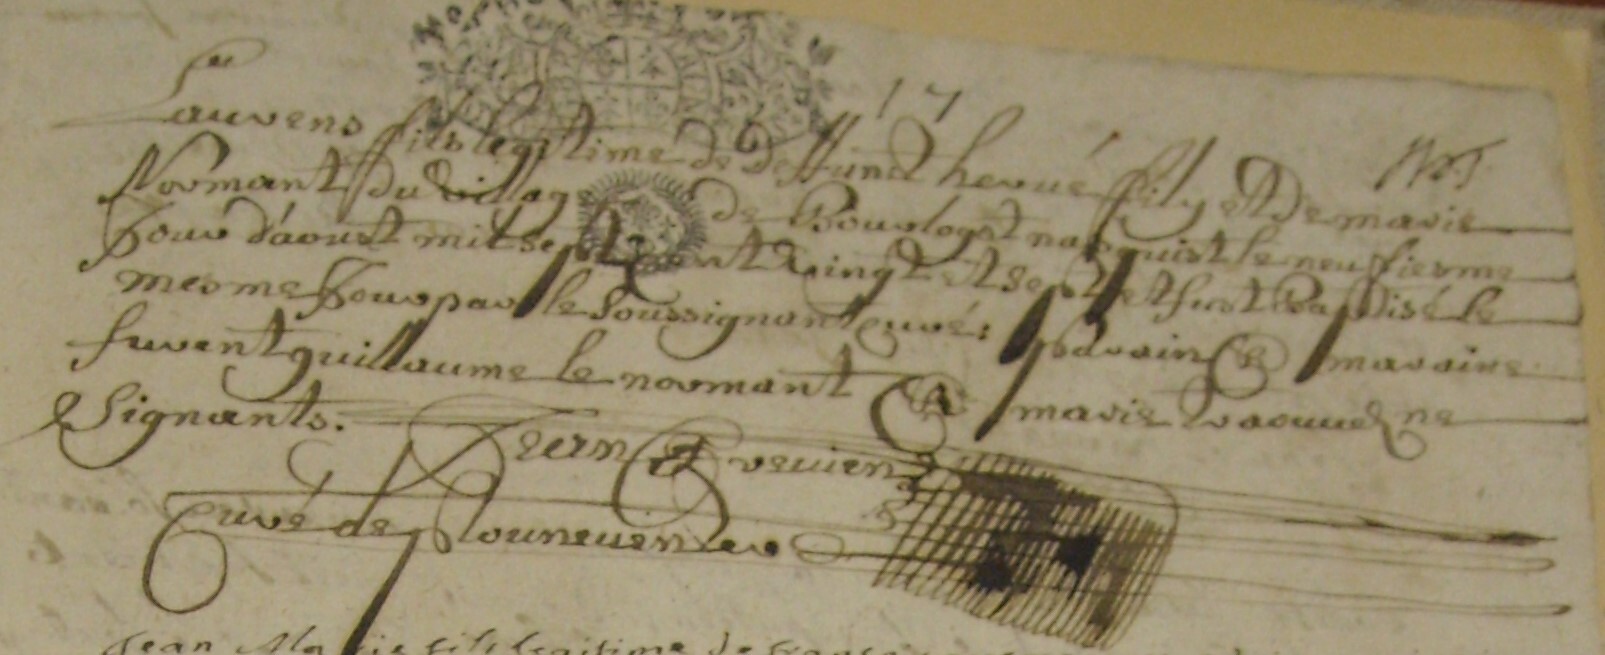 17
Laurens fils legitime de deffunct herué fily et De marie
Normant du villag de Bourlogot nasquist le neuffiesme
Jour d'aoust mil sept cent vingt et sept et fust baptisé le
mesme Jour par le soussignant Curé: parain & maraine
furent guillaume le normant & marie
signants.
Jean
Curé de Plouneuenter
Jean fils legitime de